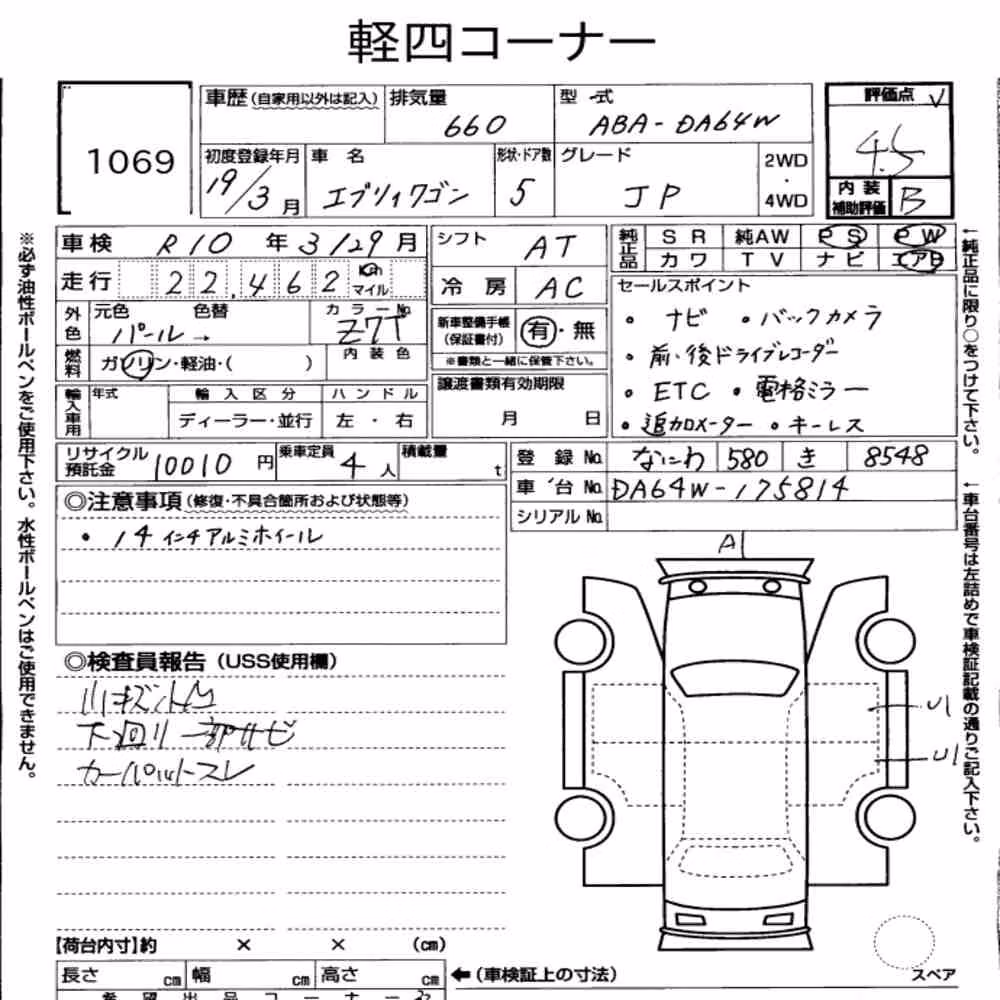 軽四コーナー
1069
車歴(自家用以外は記入) 排気量 660
型式 ABA-DA64W
評価点 ✓ 4.5
内装補助評価 B
初度登録年月 19/3月
車名 エブリィワゴン
形状・ドア数 5
グレード JP
2WD・4WD
車検 R10年3/29月
走行 22,462 Km マイル
シフト AT
冷房 AC
純正品 SR 純AW PS PW
カワ TV ナビ エアB
外色 元色 パール→ 色替
カラーNo. Z7T
燃料 ガソリン・軽油・( )
内装色
新車整備手帳(保証書付) 有・無
※書類と一緒に保管下さい。
セールスポイント
・ナビ ・バックカメラ
・前・後ドライブレコーダー
・ETC ・電格ミラー
・追加メーター ・キーレス
輸入車用 年式 輸入区分 ハンドル
ディーラー・並行 左・右
譲渡書類有効期限
月 日
リサイクル預託金 10010円
乗車定員 4人
積載量 t
登録No. なにわ 580 き 8548
車台No. DA64W-175814
シリアルNo.
◎注意事項(修復・不具合箇所および状態等)
・14インチアルミホイール
A1
◎検査員報告(USS使用欄)
小キズ小凹
下廻り一部サビ
カーペットスレ
U1
U1
【荷台内寸】約 × × (cm)
長さ cm 幅 cm 高さ cm
←(車検証上の寸法)
スペア
希望出品コーナー
※必ず油性ボールペンをご使用下さい。水性ボールペンはご使用できません。
←純正品に限り○をつけて下さい。
←車台番号は左詰めで車検証記載の通りご記入下さい。